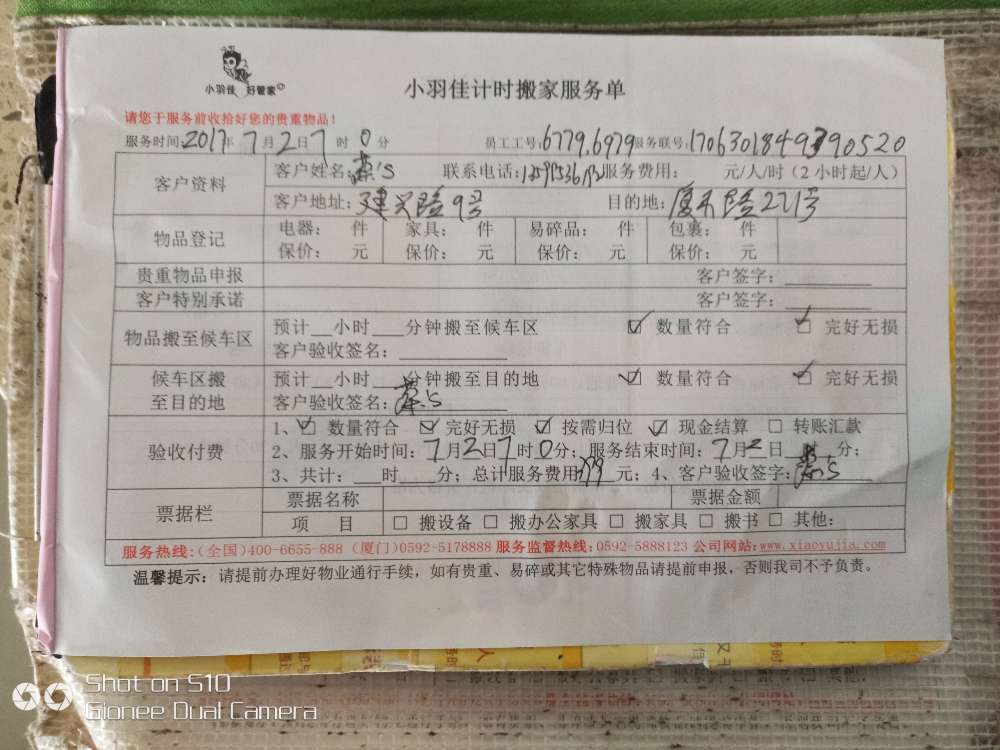 小羽佳 好管家
小羽佳计时搬家服务单
请您于服务前收拾好您的贵重物品!
服务时间:2017年7月2日7时0分 员工工号:6779.6979 服务联号:
客户资料 客户姓名: 联系电话: 服务费用: 元/人/时(2小时起/人)
客户地址:建兴路9号 目的地:
物品登记 电器: 件 家具: 件 易碎品: 件 包裹: 件
保价: 元 保价: 元 保价: 元 保价: 元
贵重物品申报 客户签字:
客户特别承诺 客户签字:
物品搬至候车区 预计__小时__分钟搬至候车区 ☑ 数量符合 ☑ 完好无损
客户验收签名:
候车区搬至目的地 预计__小时__分钟搬至目的地 ☑ 数量符合 ☑ 完好无损
客户验收签名:
验收付费 1、☑ 数量符合 ☑ 完好无损 ☑ 按需归位 ☑ 现金结算 □ 转账汇款
2、服务开始时间:7月2日7时0分; 服务结束时间:7月2日__时__分;
3、共计:__时__分; 总计服务费用 元; 4、客户验收签字:
票据栏 票据名称 票据金额
项 目 □ 搬设备 □ 搬办公家具 □ 搬家具 □ 搬书 □ 其他:
服务热线:(全国)400-6655-888 (厦门)0592-5178888 服务监督热线:0592-5888123 公司网站:www.xiaoyujia.com
温馨提示: 请提前办理好物业通行手续,如有贵重、易碎或其它特殊物品请提前申报,否则我司不予负责。
Shot on S10
Gionee Dual Camera